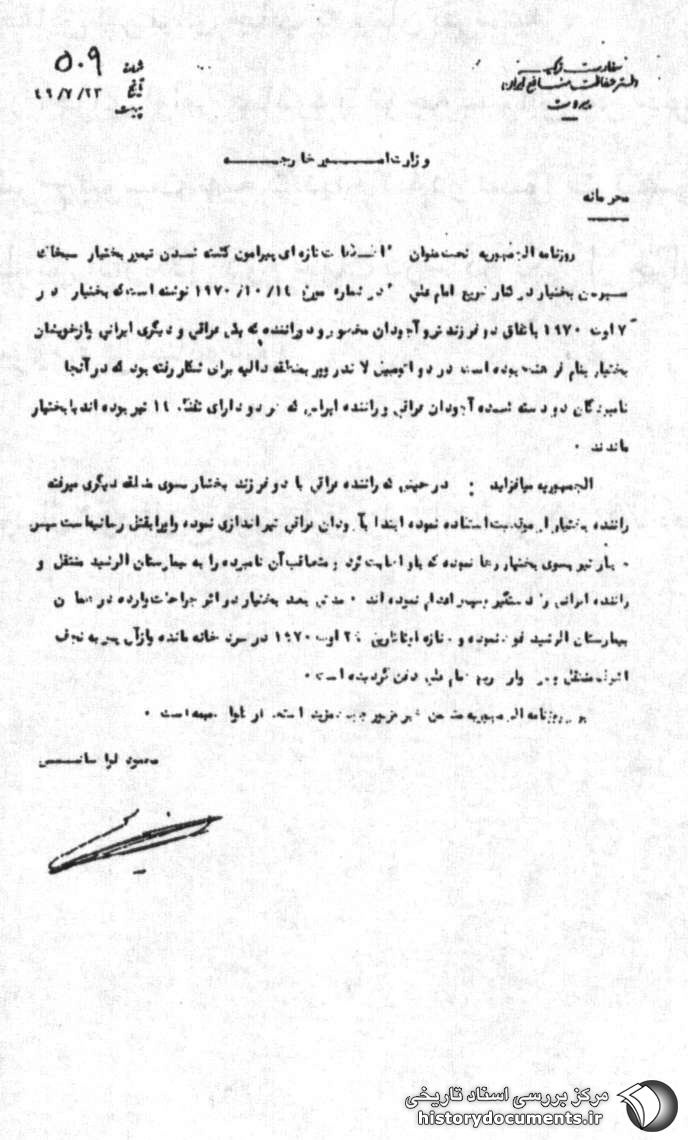 سفارت ترکیه
دفتر حفاظت منافع ایران
بیروت
شماره ۵۰۹
تاریخ ۴۹/۷/۲۳
پیوست
وزارت امور خارجه
محرمانه
روزنامه الجمهوریه تحت عنوان " تازه ای پیرامون کشته شدن تیمور بختیار سبهانه
بختیار در کنار ضریح امام علی " در شماره مورخ ۱۹۷۰/۱۰/۱۴ نوشته است که بختیار در
۷ اوت ۱۹۷۰ باتفاق دو فرزند نر و آجودان مخصوص و دو راننده که یکی عراقی و دیگری ایرانی و از خویشان
بختیار بنام فرهنگ بوده است در دو اتومبیل لاندرور بمنطقه دیاله برای شکار رفته بود که در آنجا
نامبردگان دو دسته شده آجودان عراقی و راننده ایرانی که هر دو دارای تفنگ ۱۴ تیر بوده اند با بختیار
ماندند ۰
الجمهوریه میافزاید : در حینی که راننده عراقی با دو فرزند بختیار بسوی منطقه دیگری میرفته
راننده بختیار از موقعیت استفاده نموده ابتدا بآجودان عراقی تیراندازی نموده و او را بقتل رسانیده است سپس
تیر بسوی بختیار رها نموده که باو اصابت کرد و متعاقب آن نامبرده را به بیمارستان الرشید منتقل و
راننده ایرانی را دستگیر و سپس اعدام نموده اند ۰ مدتی بعد بختیار در اثر جراحات وارده در همان
بیمارستان الرشید فوت نموده و جنازه او تا تاریخ ۲۴ اوت ۱۹۷۰ در سرد خانه مانده و از آن پس به نجف
اشرف منتقل و در جوار حریم امام علی دفن گردیده است ۰
روزنامه الجمهوریه متضمن خبر مزبور جهت مزید استحضار ضمیمه است ۰
محمود لواسانی
مرکز بررسی اسناد تاریخی
historydocuments.ir